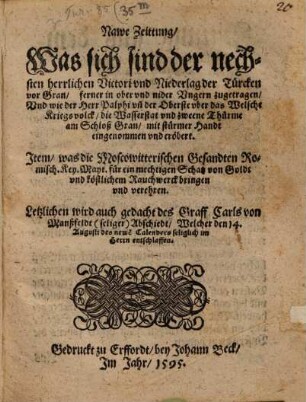 Nawe Zeittung/
Was sich sind der nech-
sten herrlichen Victori vnd Niederlag der Türcken
vor Gran/ ferner in ober vnd nider Ungern zugetragen/
Vnd wie der Herr Palphi vñ der Oberste vber das Welsche
Kriegsvolck/ die Wasserstat vnd zweene Thürme
am Schloß Gran/ mit stürmer Handt
eingenommen vnd eröbert.
Item/ was die Moscowitterischen Gesandten Ro-
misch. Key. Mayt. für ein mechtigen Schatz von Goldt
vnd köstlichem Rauchwerck bringen
vnd verehren.
Letzlichen wird auch gedacht des Graff Carls von
Manßfeldt (seliger) Abschiedt/ Welcher den 14.
Augusti des newẽ Calenders seliglich im
Herrn entschlaffen.
Gedruckt zu Erffordt/ bey Johann Beck/
Im Jahr/ 1595.